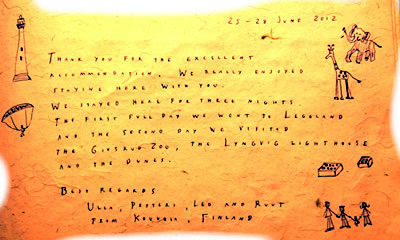 25-28 June 2012
Thank you for the excellent
accommodation. We really enjoyed
staying here with you.
We stayed here for three nights.
The first full day we went to Legoland
and the second day we visited
the Givskud Zoo, the Lyngvig lighthouse
and the dunes.
Best regards
Ulla, Petteri, Leo and Ruut
from Kouvola, Finland